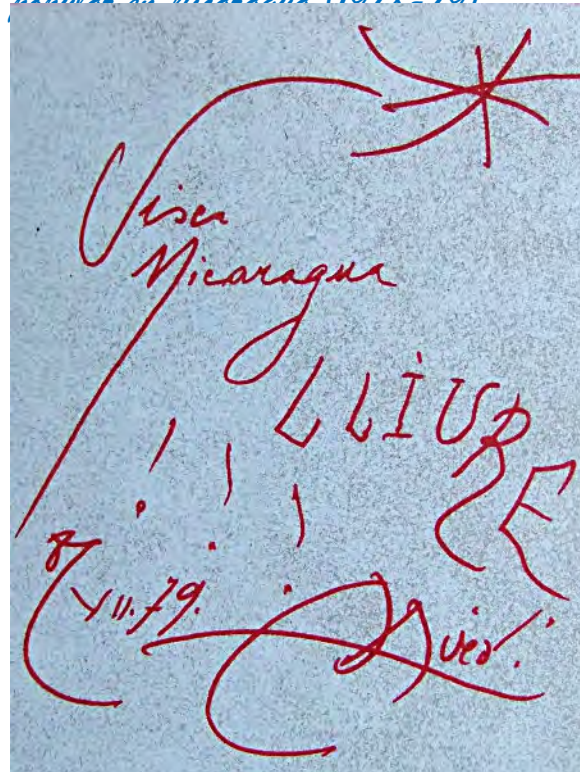 Visca
Nicaragua
LLIURE
! ! !
VII.79.